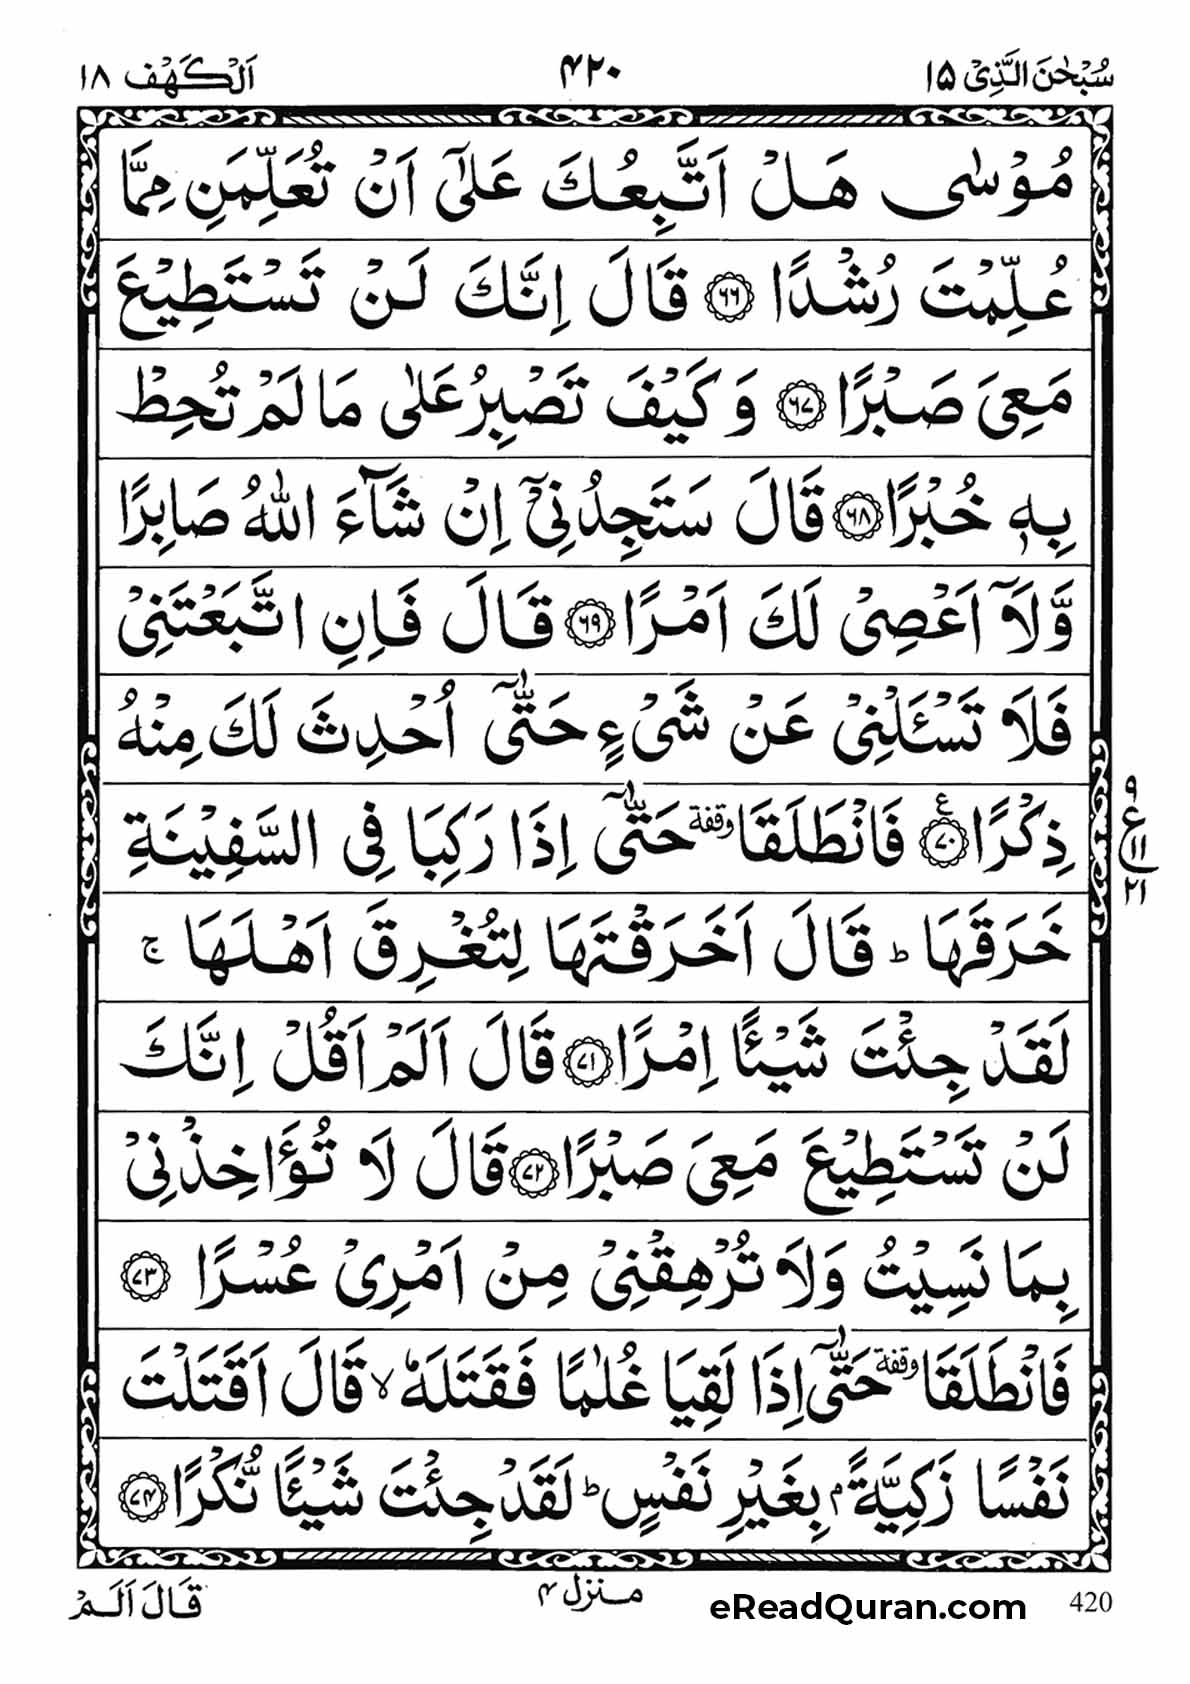 سُبْحٰنَ الَّذِیْۤ ۱۵ ۴۲۰ اَلْكَهْف ۱۸
مُوْسٰی هَلْ اَتَّبِعُكَ عَلٰۤی اَنْ تُعَلِّمَنِ مِمَّا
عُلِّمْتَ رُشْدًا ﴿۶۶﴾ قَالَ اِنَّكَ لَنْ تَسْتَطِیْعَ
مَعِیَ صَبْرًا ﴿۶۷﴾ وَ كَیْفَ تَصْبِرُ عَلٰی مَا لَمْ تُحِطْ
بِهٖ خُبْرًا ﴿۶۸﴾ قَالَ سَتَجِدُنِیْۤ اِنْ شَآءَ اللّٰهُ صَابِرًا
وَّ لَاۤ اَعْصِیْ لَكَ اَمْرًا ﴿۶۹﴾ قَالَ فَاِنِ اتَّبَعْتَنِیْ
فَلَا تَسْـَٔلْنِیْ عَنْ شَیْءٍ حَتّٰۤی اُحْدِثَ لَكَ مِنْهُ
ذِكْرًا ﴿۷۰﴾ ع فَانْطَلَقَا وقفة حَتّٰۤی اِذَا رَكِبَا فِی السَّفِیْنَةِ
ع ۹ ۱۱ ۲۱
خَرَقَهَا ؕ قَالَ اَخَرَقْتَهَا لِتُغْرِقَ اَهْلَهَا ۚ
لَقَدْ جِئْتَ شَیْـًٔا اِمْرًا ﴿۷۱﴾ قَالَ اَلَمْ اَقُلْ اِنَّكَ
لَنْ تَسْتَطِیْعَ مَعِیَ صَبْرًا ﴿۷۲﴾ قَالَ لَا تُؤَاخِذْنِیْ
بِمَا نَسِیْتُ وَلَا تُرْهِقْنِیْ مِنْ اَمْرِیْ عُسْرًا ﴿۷۳﴾
فَانْطَلَقَا وقفة حَتّٰۤی اِذَا لَقِیَا غُلٰمًا فَقَتَلَهٗ ۙ قَالَ اَقَتَلْتَ
نَفْسًا زَكِیَّةًۢ بِغَیْرِ نَفْسٍ ؕ لَقَدْ جِئْتَ شَیْـًٔا نُّكْرًا ﴿۷۴﴾
قَالَ اَلَمْ منزل ۴ eReadQuran.com 420